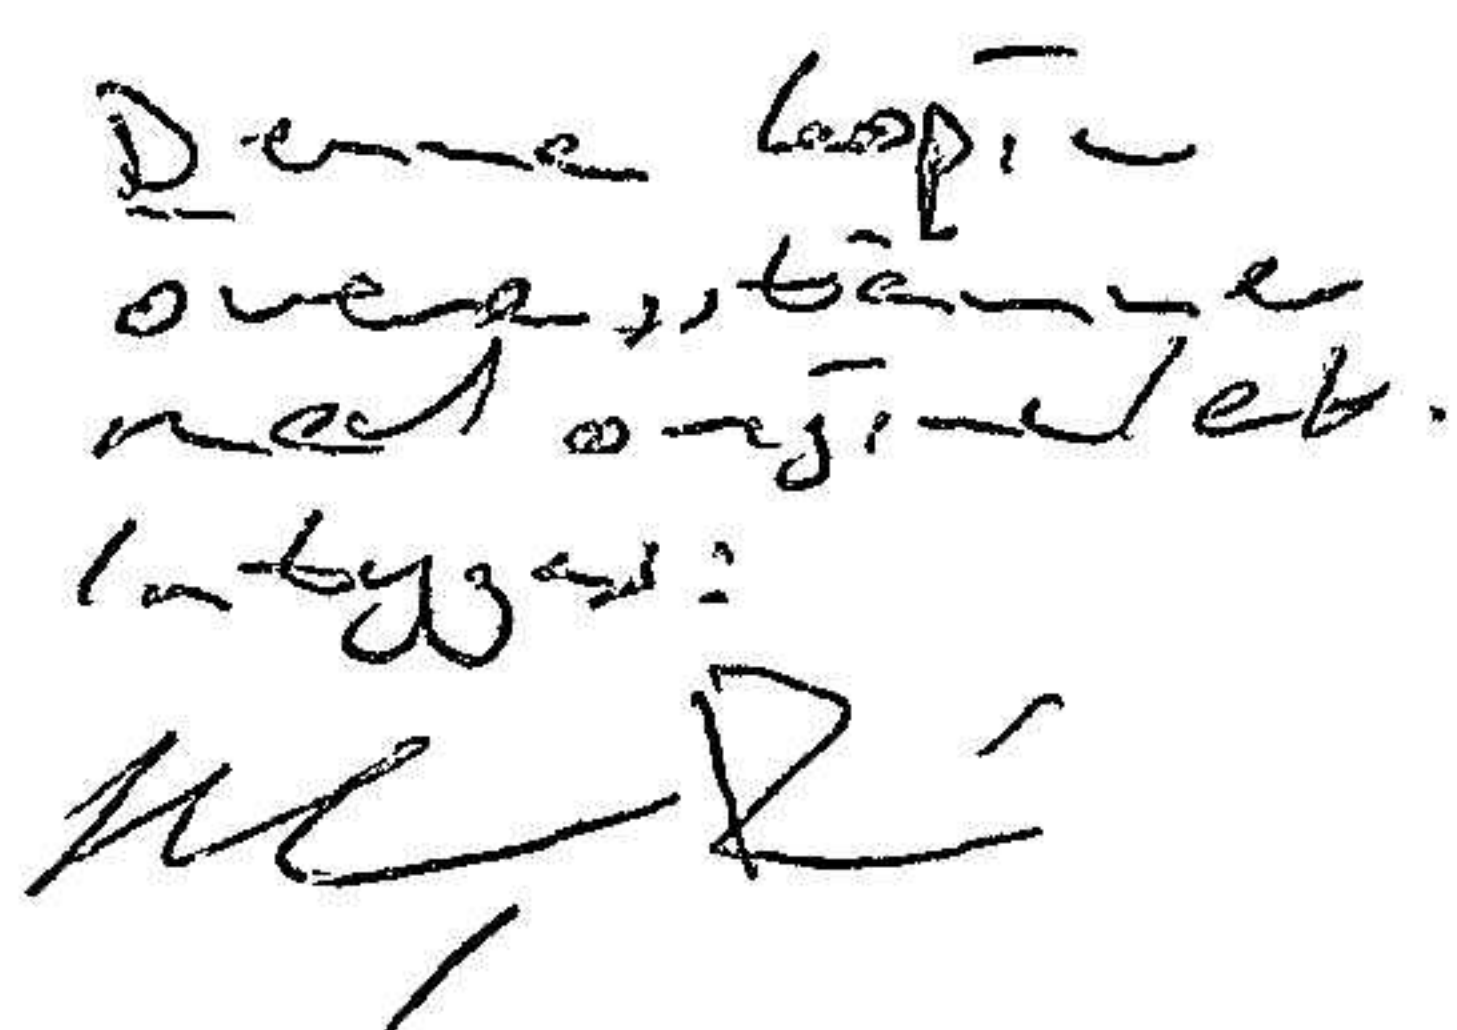 Denna kopia
överensstämmer
med originalet.
Intygas: